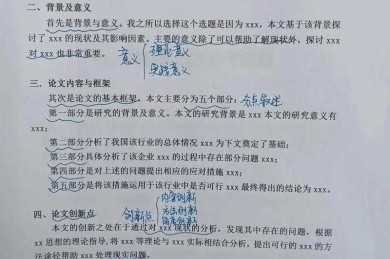 二、背景及意义
首先是背景与意义。我之所以选择这个选题是因为 xxx，本文基于该背景探
讨了 xxx 的现状及其影响因素。主要的意义除了可以帮助了解现状外，探讨 xxx
对 xx 也非常重要。 意义 理论意义
实践意义
三、论文内容与框架
其次是论文的基本框架。本文主要分为五个部分：
第一部分是研究的背景及意义。本文的研究背景是 xxx 本文的研究意义有
xxx。
第二部分分析了我国该行业的总体情况 xxx 为下文奠定了基础；
第三部分具体分析了该企业 xxx 的过程中存在部分问题 xxx；
第四部分是对上述的问题提出相应的应对措施 xxx；
第五部分是将该措施运用于该行业中是否可行 xxx 最终得出的结论为 xxx。
内容创新
四、论文创新点 创新点 方法创新
角度创新
本文的创新之处在于通过对 xxx 现状的分析，发现其中存在的问题。根据
xx 思想的理论指导，将 xxx 等理论与 xxx 实际相结合分析，提出可行的 xxx 的方
法途径帮助 xxx 处理现实问题。